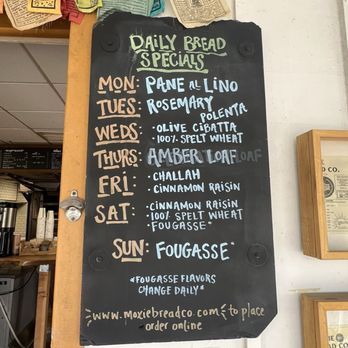 DAILY BREAD
SPECIALS
MON: PANE al LINO
TUES: ROSEMARY
POLENTA
WEDS: • OLIVE CIBATTA
• 100% SPELT WHEAT
THURS: AMBER LOAF
FRI: • CHALLAH
• CINNAMON RAISIN
SAT: • CINNAMON RAISIN
• 100% SPELT WHEAT
FOUGASSE*
SUN: FOUGASSE*
*FOUGASSE FLAVORS
CHANGE DAILY*
www.moxiebreadco.com to place
order online